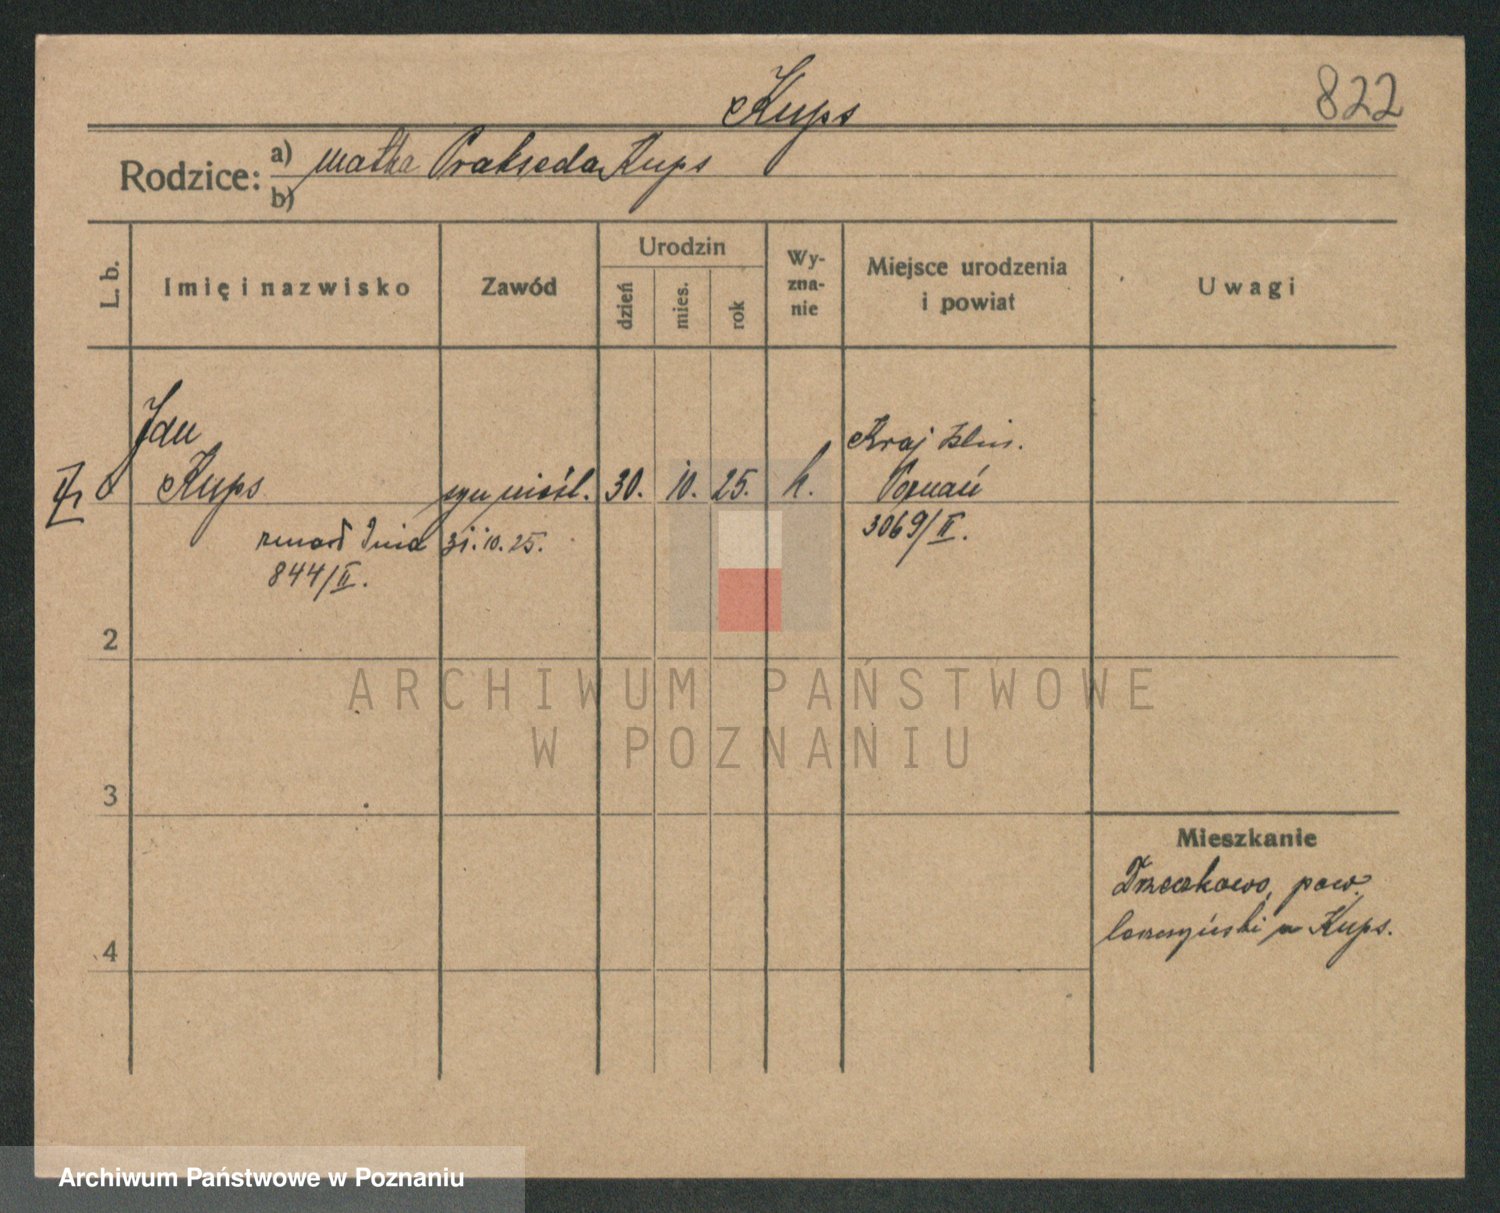 822
Kups
Rodzice: a) matka Prakseda Kups
b)
L. b.
Imię i nazwisko
Zawód
Urodzin
dzień
mies.
rok
Wy-
zna-
nie
Miejsce urodzenia
i powiat
Uwagi
Jan
Kups
syn nieśl.
30. 10. 25.
k.
Kraj. Klin.
Poznań
3069/II.
zmarł dnia 31.10.25.
844/II.
2
3
4
Mieszkanie
pow.
Kups.
ARCHIWUM PAŃSTWOWE
W POZNANIU
Archiwum Państwowe w Poznaniu